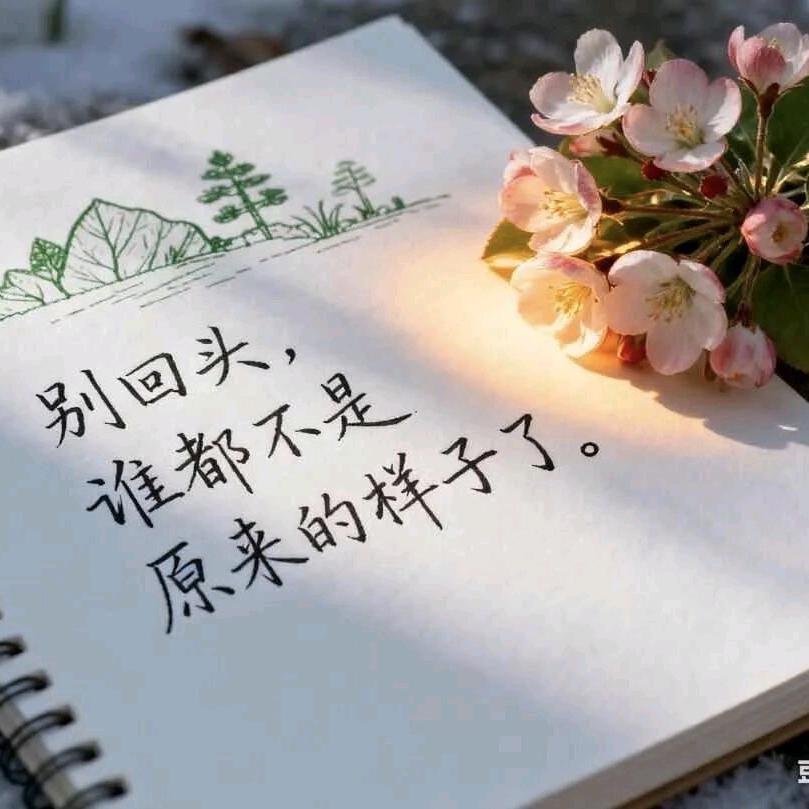 别回头，
谁都不是
原来的样子了。